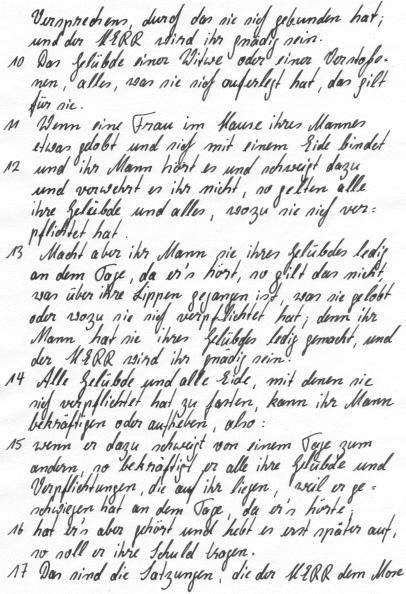 Versprechen, durch das sie sich gebunden hat;
und der HERR wird ihr gnädig sein.
10 Das Gelübde einer Witwe oder einer Verstoße-
nen, alles, was sie sich auferlegt hat, das gilt
für sie.
11 Wenn eine Frau im Hause ihres Mannes
etwas gelobt und sich mit einem Eide bindet
12 und ihr Mann hört es und schweigt dazu
und verwehrt es ihr nicht, so gelten alle
ihre Gelübde und alles, wozu sie sich ver=
pflichtet hat.
13 Macht aber ihr Mann sie ihres Gelübdes ledig
an dem Tage, da er's hört, so gilt das nicht,
was über ihre Lippen gegangen ist, was sie gelobt
oder wozu sie sich verpflichtet hat; denn ihr
Mann hat sie ihres Gelübdes ledig gemacht, und
der HERR wird ihr gnädig sein.
14 Alle Gelübde und alle Eide, mit denen sie
sich verpflichtet hat zu fasten, kann ihr Mann
bekräftigen oder aufheben, also:
15 wenn er dazu schweigt von einem Tage zum
andern, so bekräftigt er alle ihre Gelübde und
Verpflichtungen, die auf ihr liegen, weil er ge=
schwiegen hat an dem Tage, da er's hörte;
16 hat er's aber gehört und hebt es erst später auf,
so soll er ihre Schuld tragen.
17 Das sind die Satzungen, die der HERR dem Mose